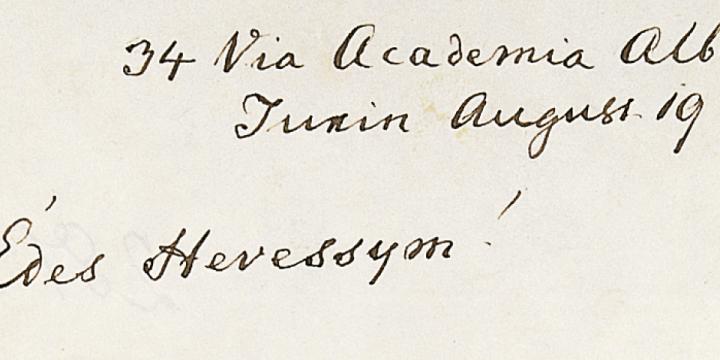 34 Via Academia Alb
Turin August 19
Édes Hevessym!